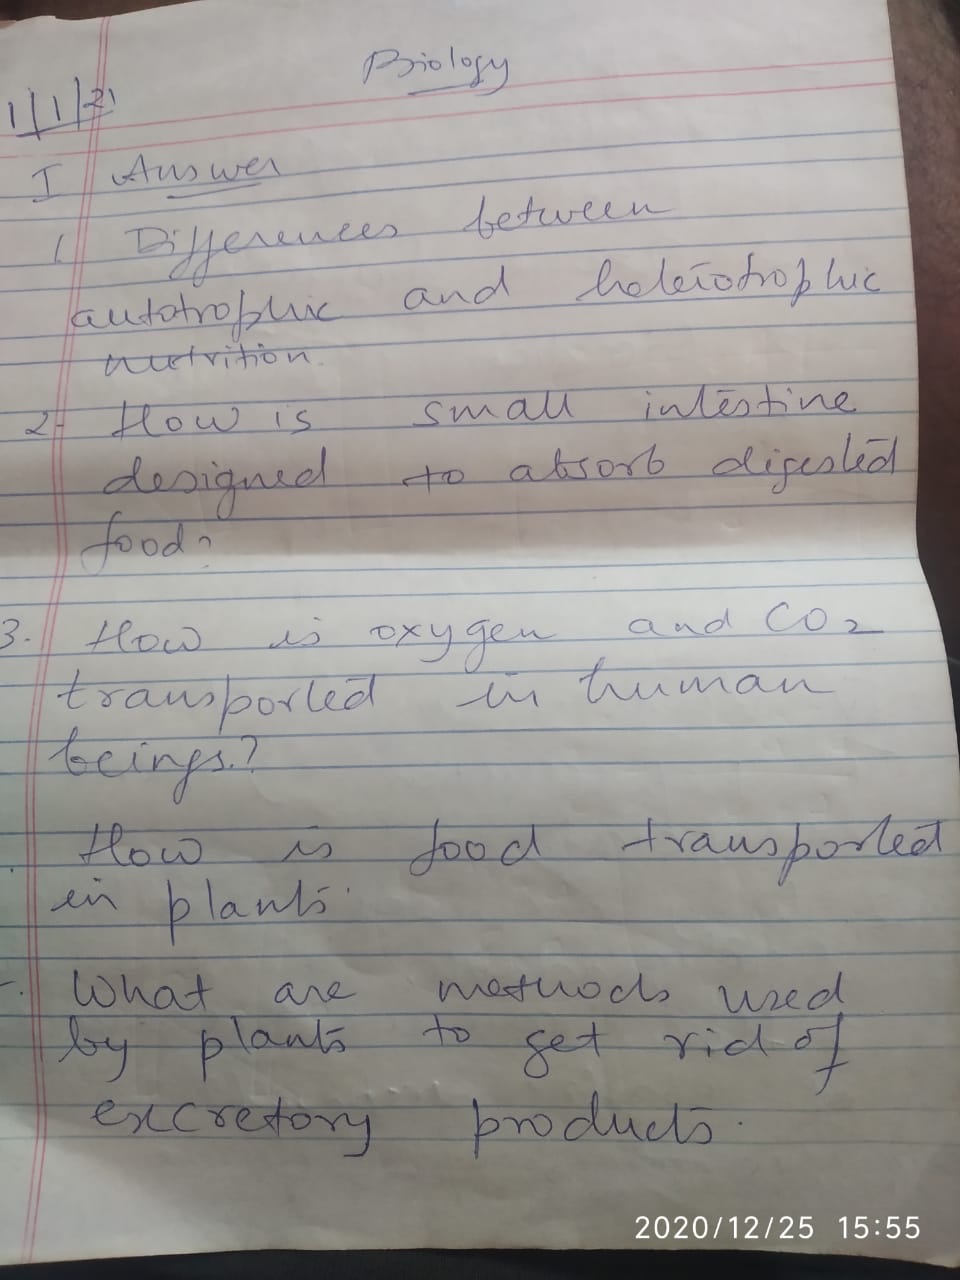 Biology
1/1/21
I Answer
1. Differences between
autotrophic and heterotrophic
nutrition.
2. How is small intestine
designed to absorb digested
food?
3. How is oxygen and CO2
transported in human
beings.?
How is food transported
in plants.
What are methods used
by plants to get rid of
excretory products.
2020/12/25 15:55